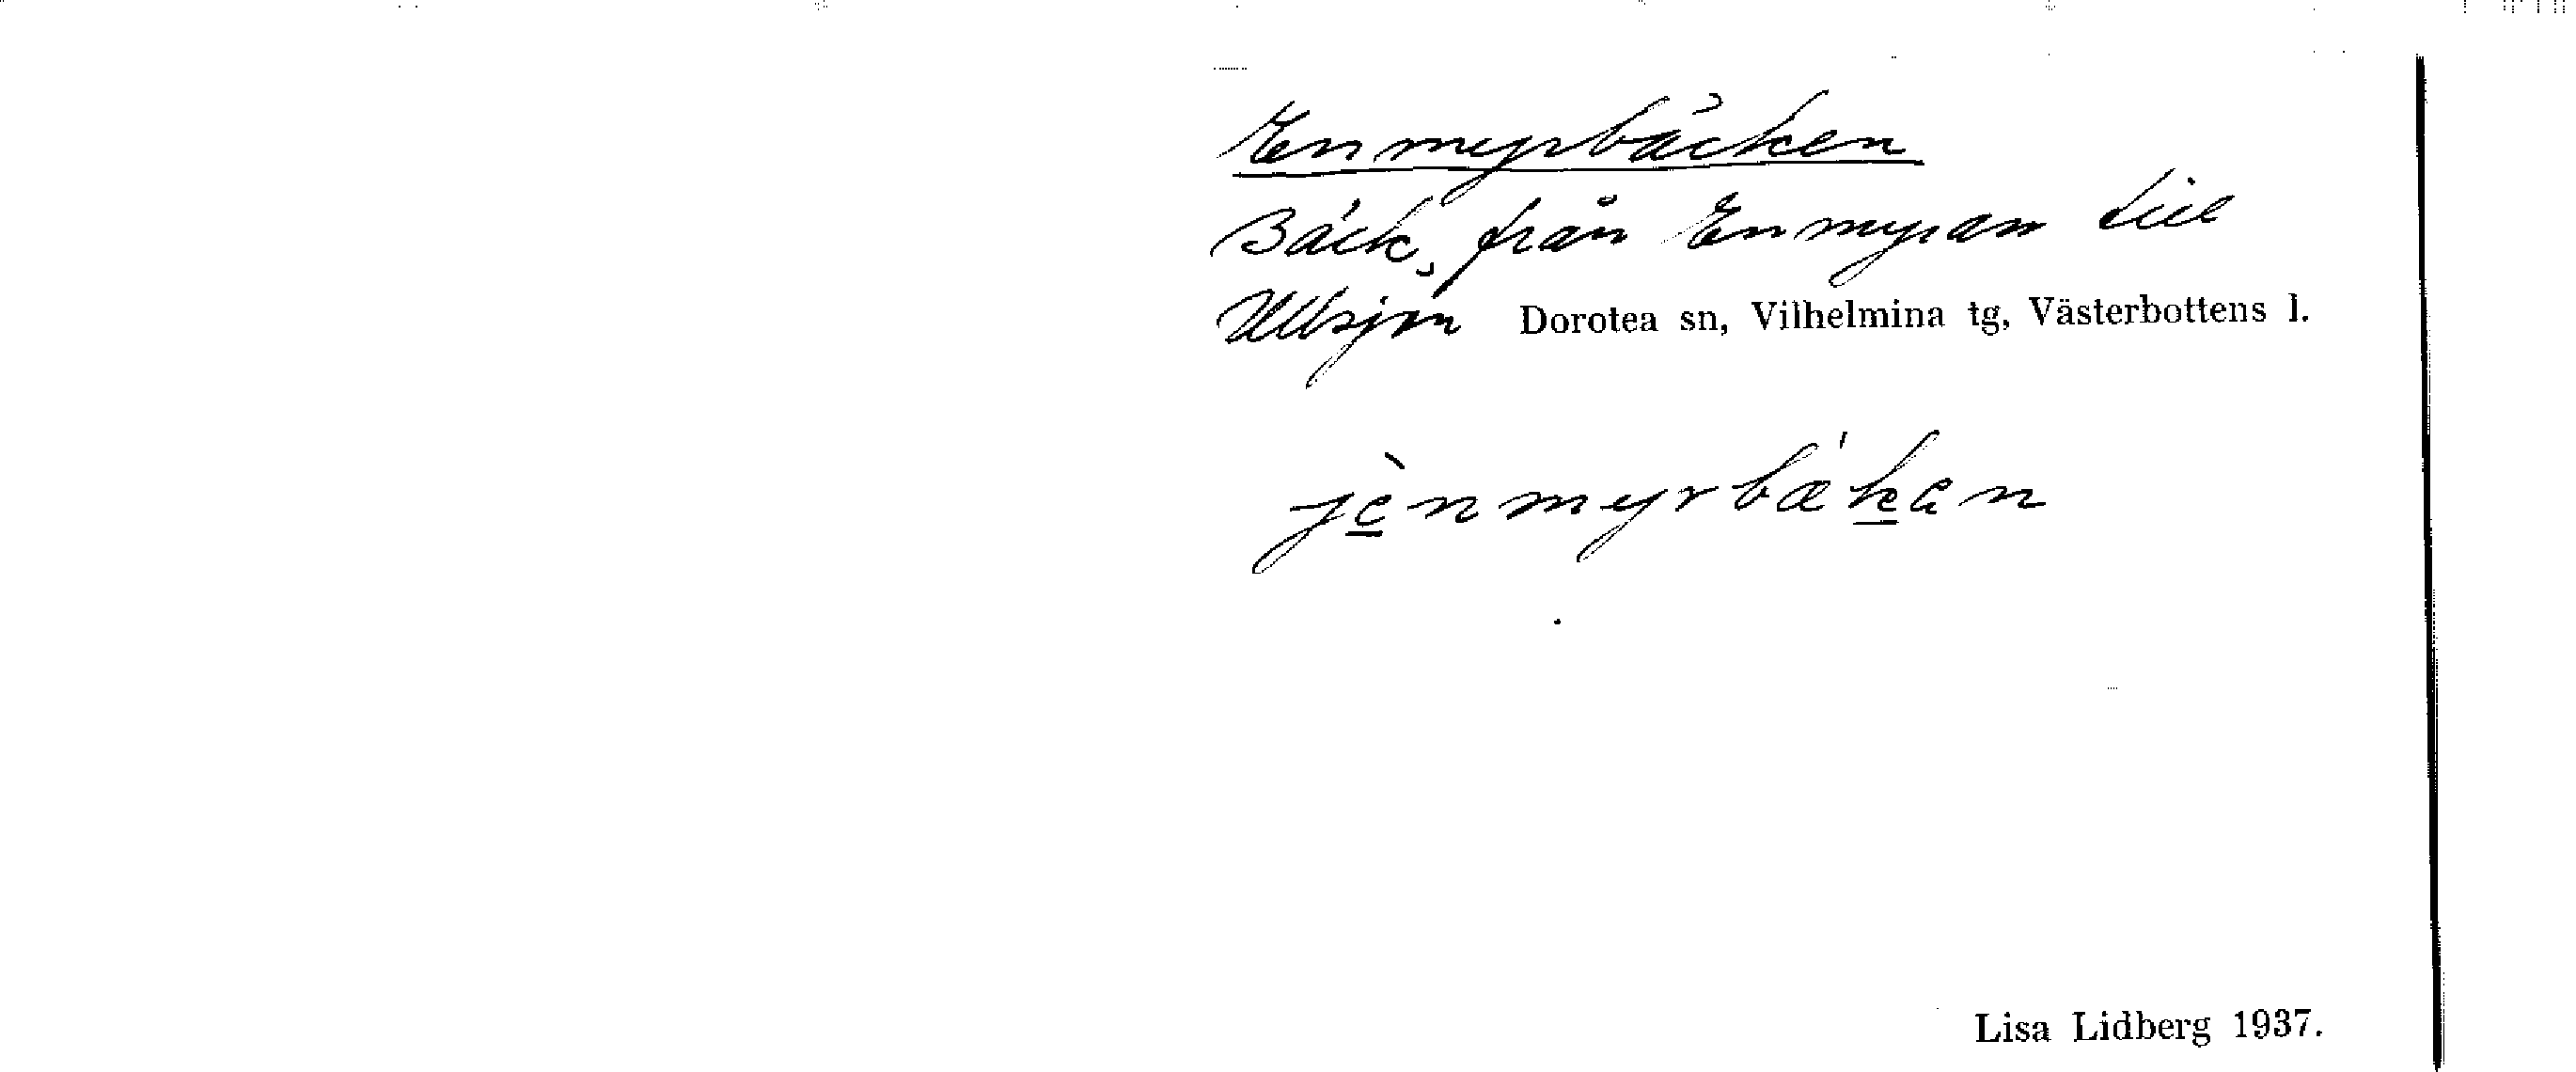 Enmyrbäcken
Bäck, från Enmyran till
Ullsjön Dorotea sn, Vilhelmina tg, Västerbottens l.
jènmyrbækan
Lisa Lidberg 1937.